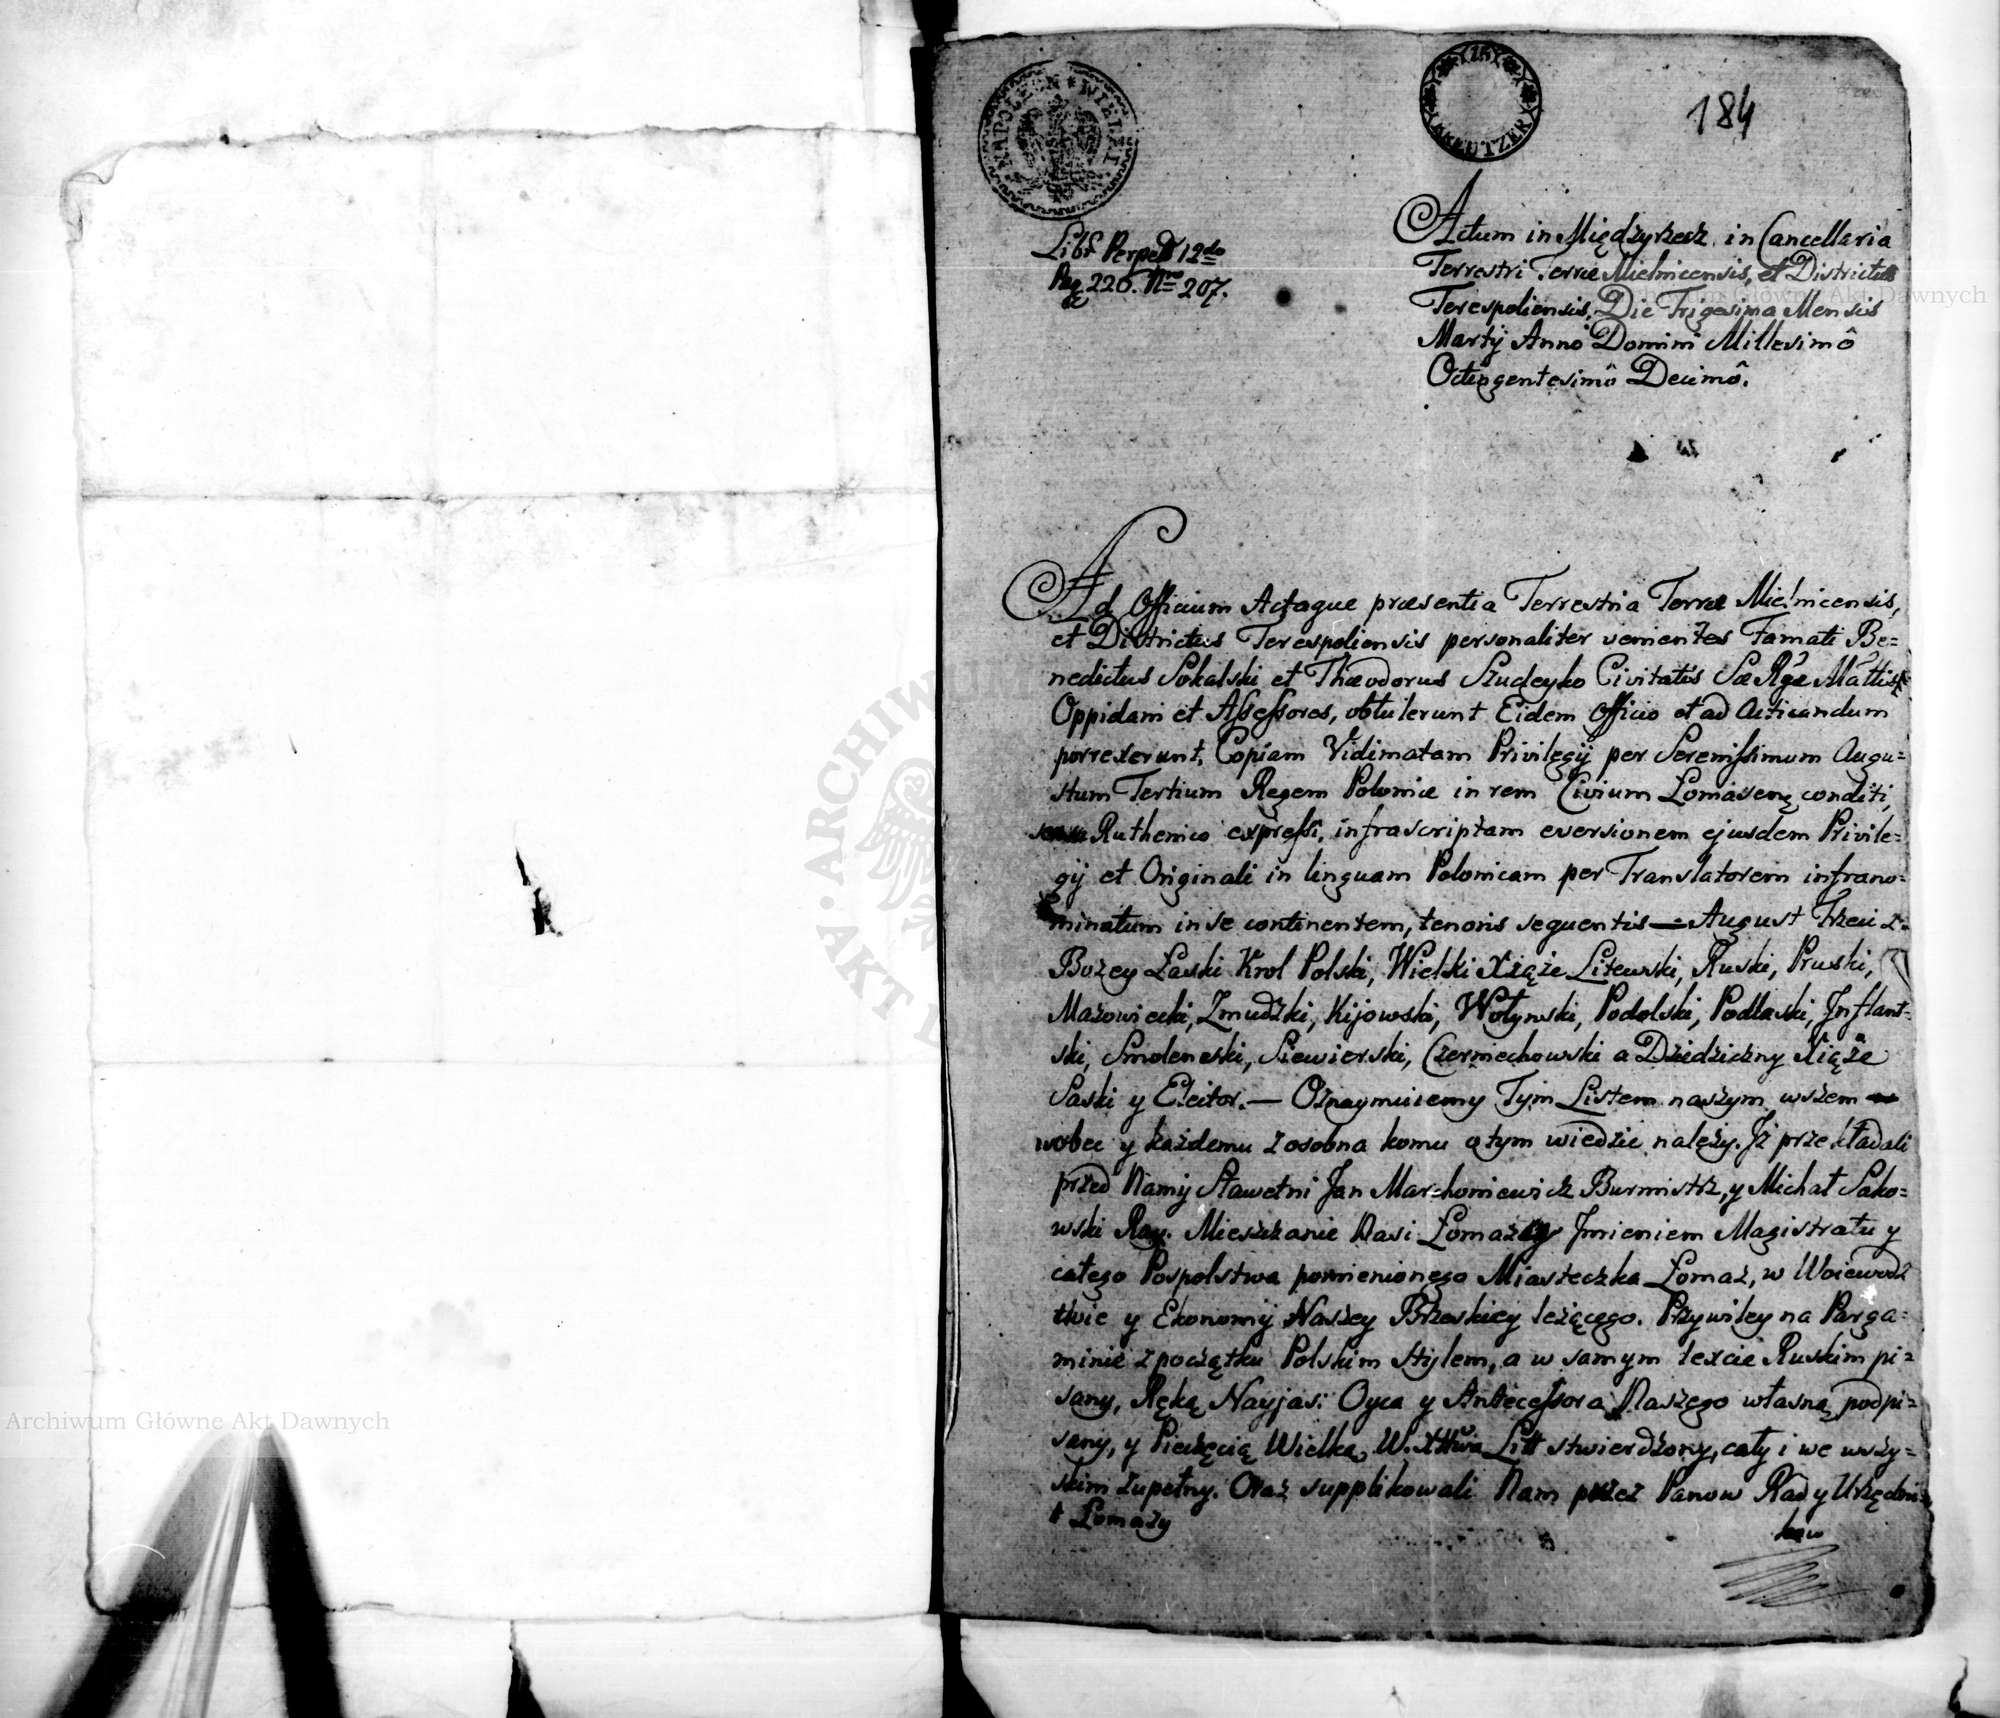 184
NAPOLEON * WIELKI
15 KREUTZER
Libr Perpet 12do
Pag 226. Nro 207.
Actum in Międzyrzecz in Cancellaria
Terrestri Terræ Mielnicensis, et Districtus
Terespoliensis, Die Trigesima Mensis
Martÿ Anno Domini Millesimô
Octingentesimô Decimô.
Ad Officium Actaque præsentia Terrestria Terræ Mielnicensis,
et Districtus Terespoliensis personaliter venientes Famati Be=
nedictus Sokalski et Thæodorus Szudeyko Civitatis Sæ Rgæ Mattis
Oppidani et Assessores, obtulerunt Eidem Officio et ad Acticandum
porrexerunt, Copiam Vidimatam Privilegÿ per Serenissimum Augu=
stum Tertium Regem Poloniæ in rem Civium Lomasen conditi,
Ruthenico expressi, infrascriptam eversionem ejusdem Privile=
gÿ et Originali in linguam Polonicam per Translatorem infrano=
minatum in se continentem, tenoris sequentis — August Trzeci z
Bozey Łaski Krol Polski, Wielki Xżąże Litewski, Ruski, Pruski,
Mazowiecki, Zmudzki, Kijowski, Wołynski, Podolski, Podlaski, Jnflant=
ski, Smolenski, Siewierski, Czerniechowski a Dziedziczny Xiąże
Saski y Elektor. — Oznaymuiemy Tym Listem naszym wszem
wobec y każdemu zosobna komu otym wiedzic należy. Jż przekładali
przed Namÿ Sławetni Jan Marchoniewicz Burmistrz, y Michał Sako=
wski Ray. Mieszczanie Nasi Łomazcy Jmieniem Magistratu y
całego Pospolstwa pomienionego Miasteczka Łomaz, w Woiewodz
twie y Ekonomÿ Naszey Brzeskiey leżącego. Przywiley na Parga=
minie zpocżątku Polskim stylem, a w samym texcie Ruskim pi=
sany, Ręką Nayjas: Oyca y Antecessora Naszego własną podpi=
sany, y Pieczęcią Wielką W. Xttwa Litt stwierdzony, cały i we wszy=
stkim zupełny. Oraz supplikowali Nam przez Panow Rad y Urzędni=
kow
Łomazy
Archiwum Główne Akt Dawnych
Archiwum Główne Akt Dawnych